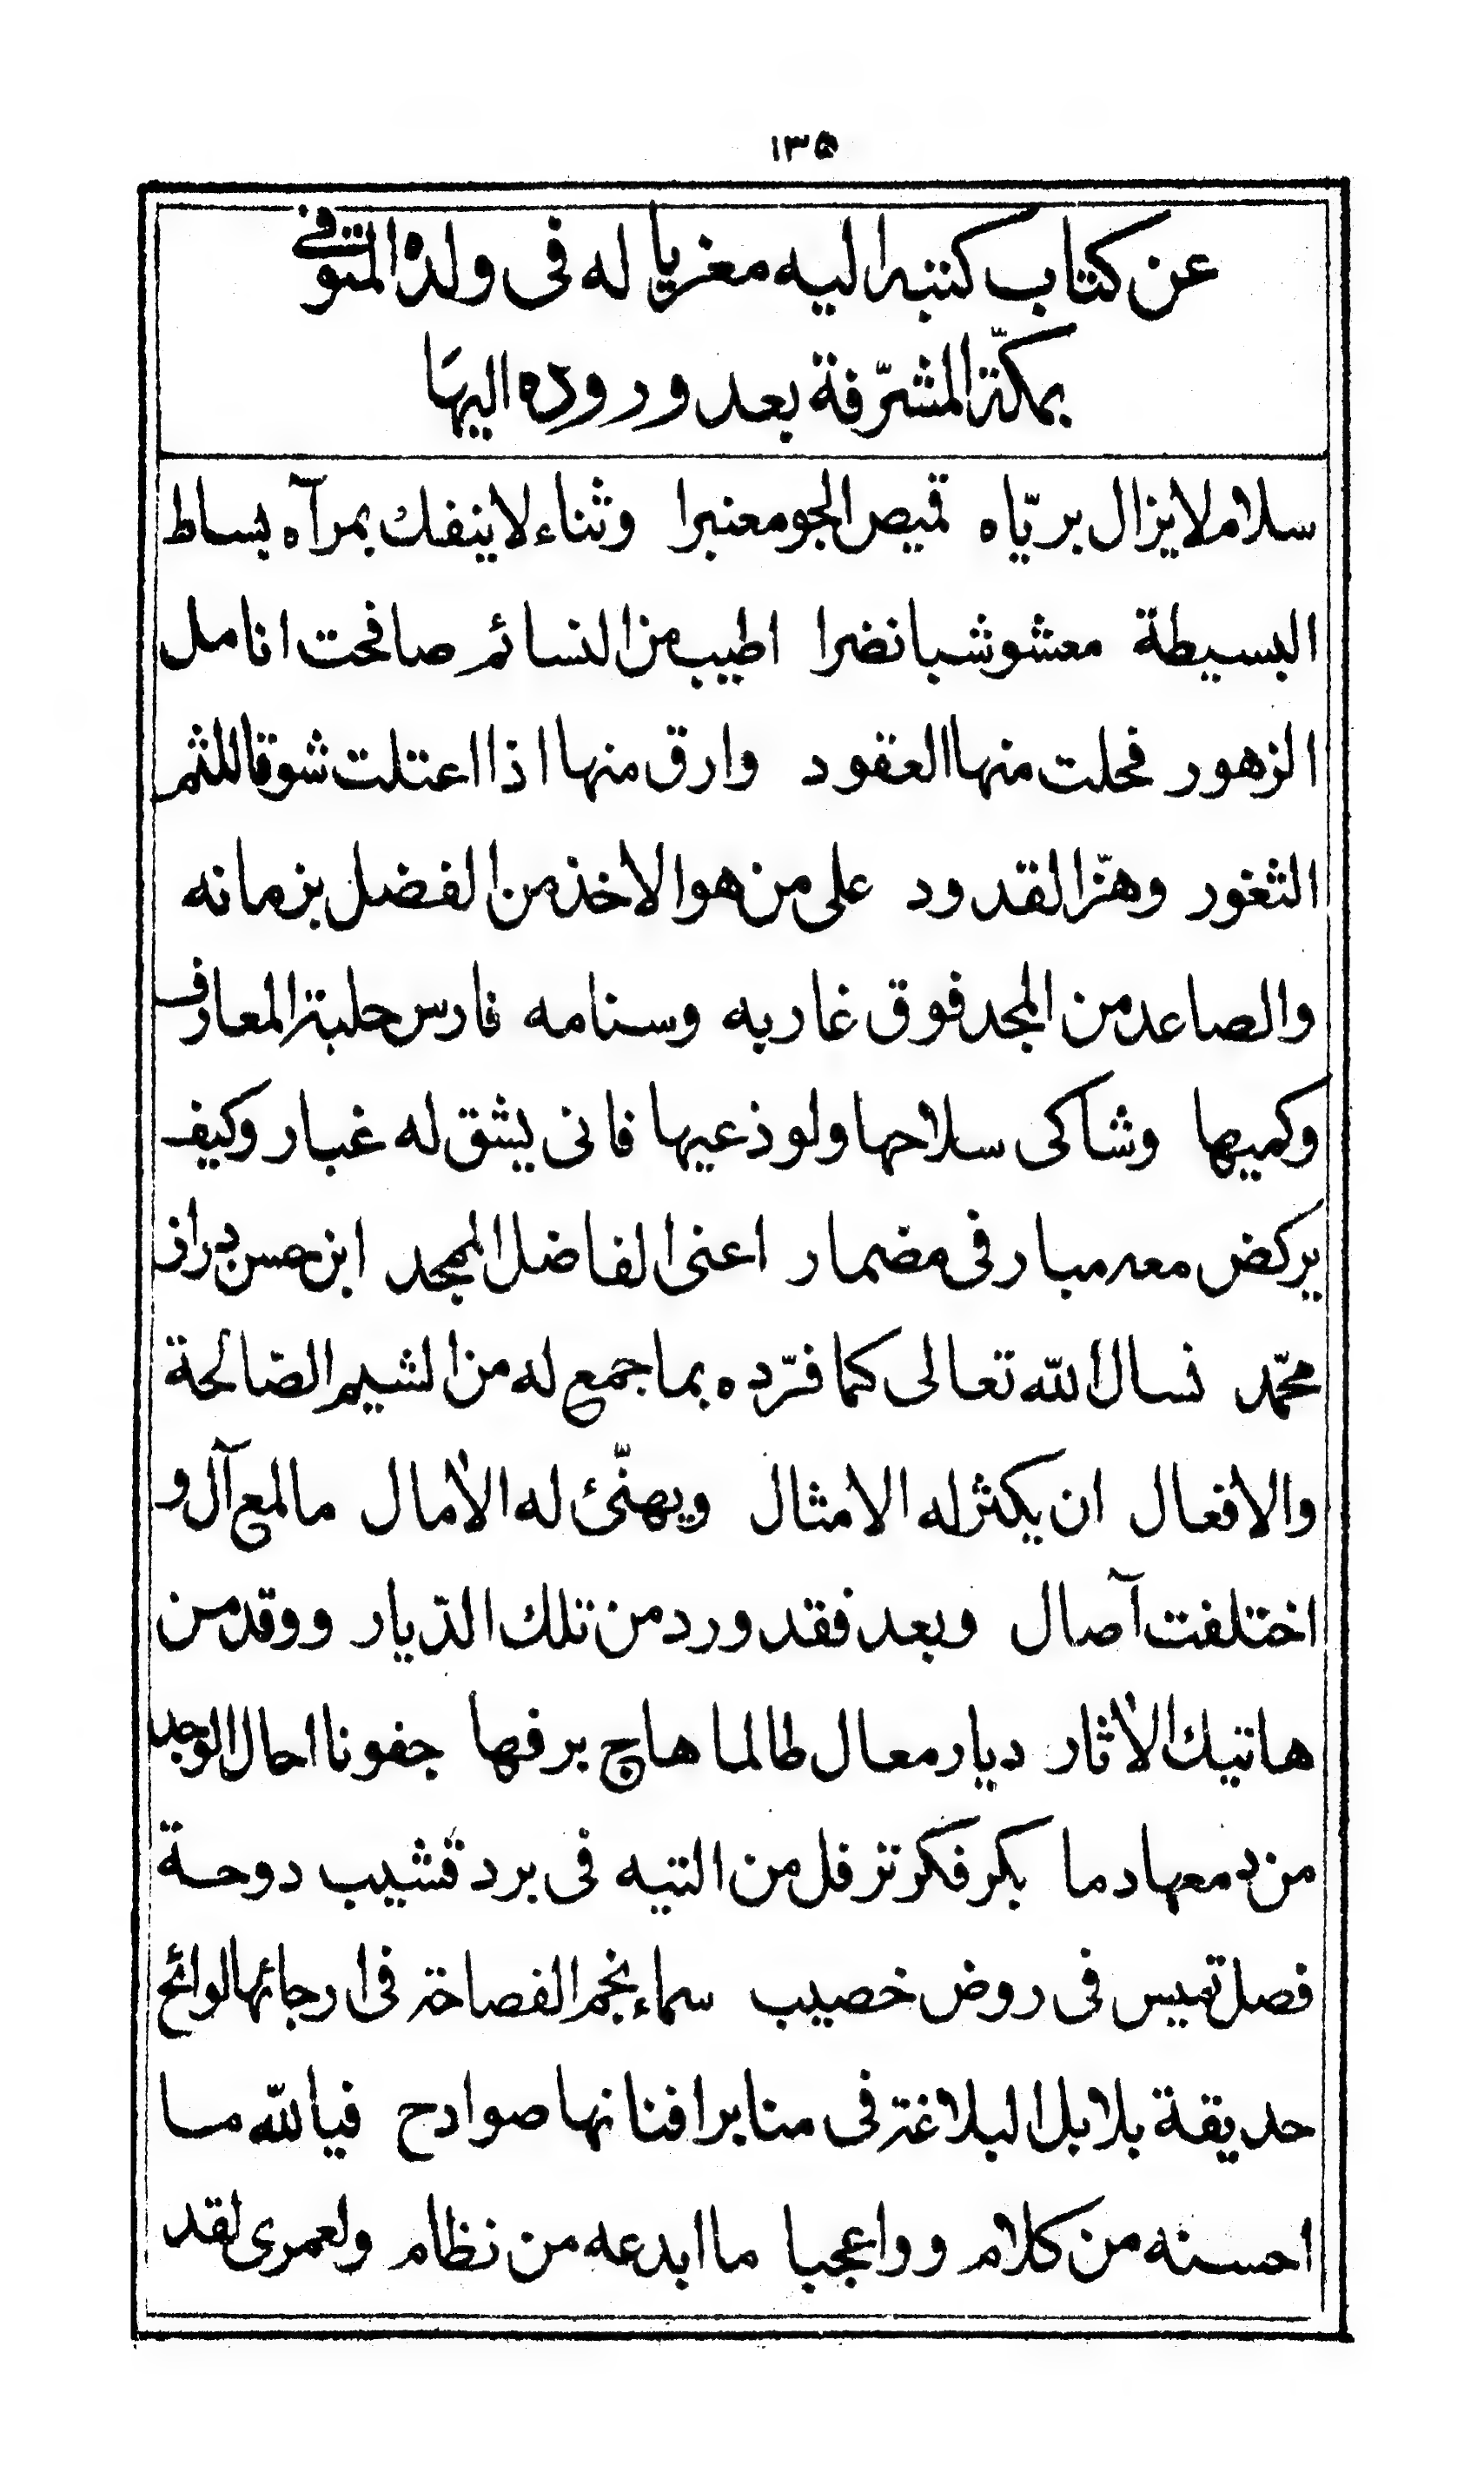 ١٣٥
عن كتاب كتبه اليه معزيا له فى ولده المتوفى
بمكّة المشرّفة بعد وروده اليها
سلام لا يزال بريّاه قميص الجو معنبرا وثناء لا ينفك بمرآه بساط
البسيطة معشوشبا نضرا اطيب من النسائم صافحت انامل
الزهور فحلت منها العقود وارق منها اذا اعتلت شوقا للثم
الثغور وهزّ القدود على من هو الاخذ من الفضل بزمانه
والصاعد من المجد فوق غاربه وسنامه فارس حلبة المعارف
وكميها وشاكى سلاحها ولوذعيها فانى يشق له غبار وكيف
يركض معه مبار فى مضمار اعنى الفاضل الممجد ابن حسن دراز
محمّد نسال اللّه تعالى كما فرّده بما جمع له من الشيم الصّالحة
والافعال ان يكثر له الامثال ويهنّئ له الأمال ما لمع آل و
اختلفت آصال وبعد فقد ورد من تلك الدّيار ووقد من
هاتيك الأثار ديار معال طالما هاج برفها جفونا احال الوجد
من دمعها دما بكر فكر ترفل من التيه فى برد قشيب دوحة
فصل تميس فى روض خصيب سماء نجم الفصاحة فى ارجائها لوائح
حديقة بلابل البلاغة فى منابر افنانها صوادح فيا للّه ما
احسنه من كلام وواعجبا ما ابدعه من نظام ولعمرى لقد